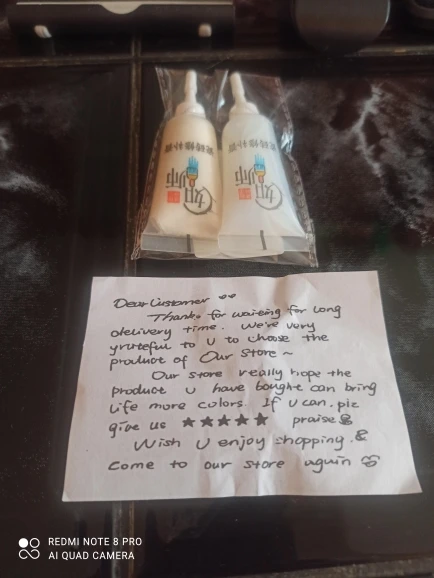 瓷砖修补膏
如师
瓷砖修补膏
如师
Dear Customer
Thanks for waiting for long
delivery time. We're very
grateful to U to choose the
product of Our Store ~
Our store really hope the
product U have bought can bring
life more colors. If U can. plz
give us ★★★★★ praise &
Wish U enjoy shopping. &
Come to our store again
REDMI NOTE 8 PRO
AI QUAD CAMERA